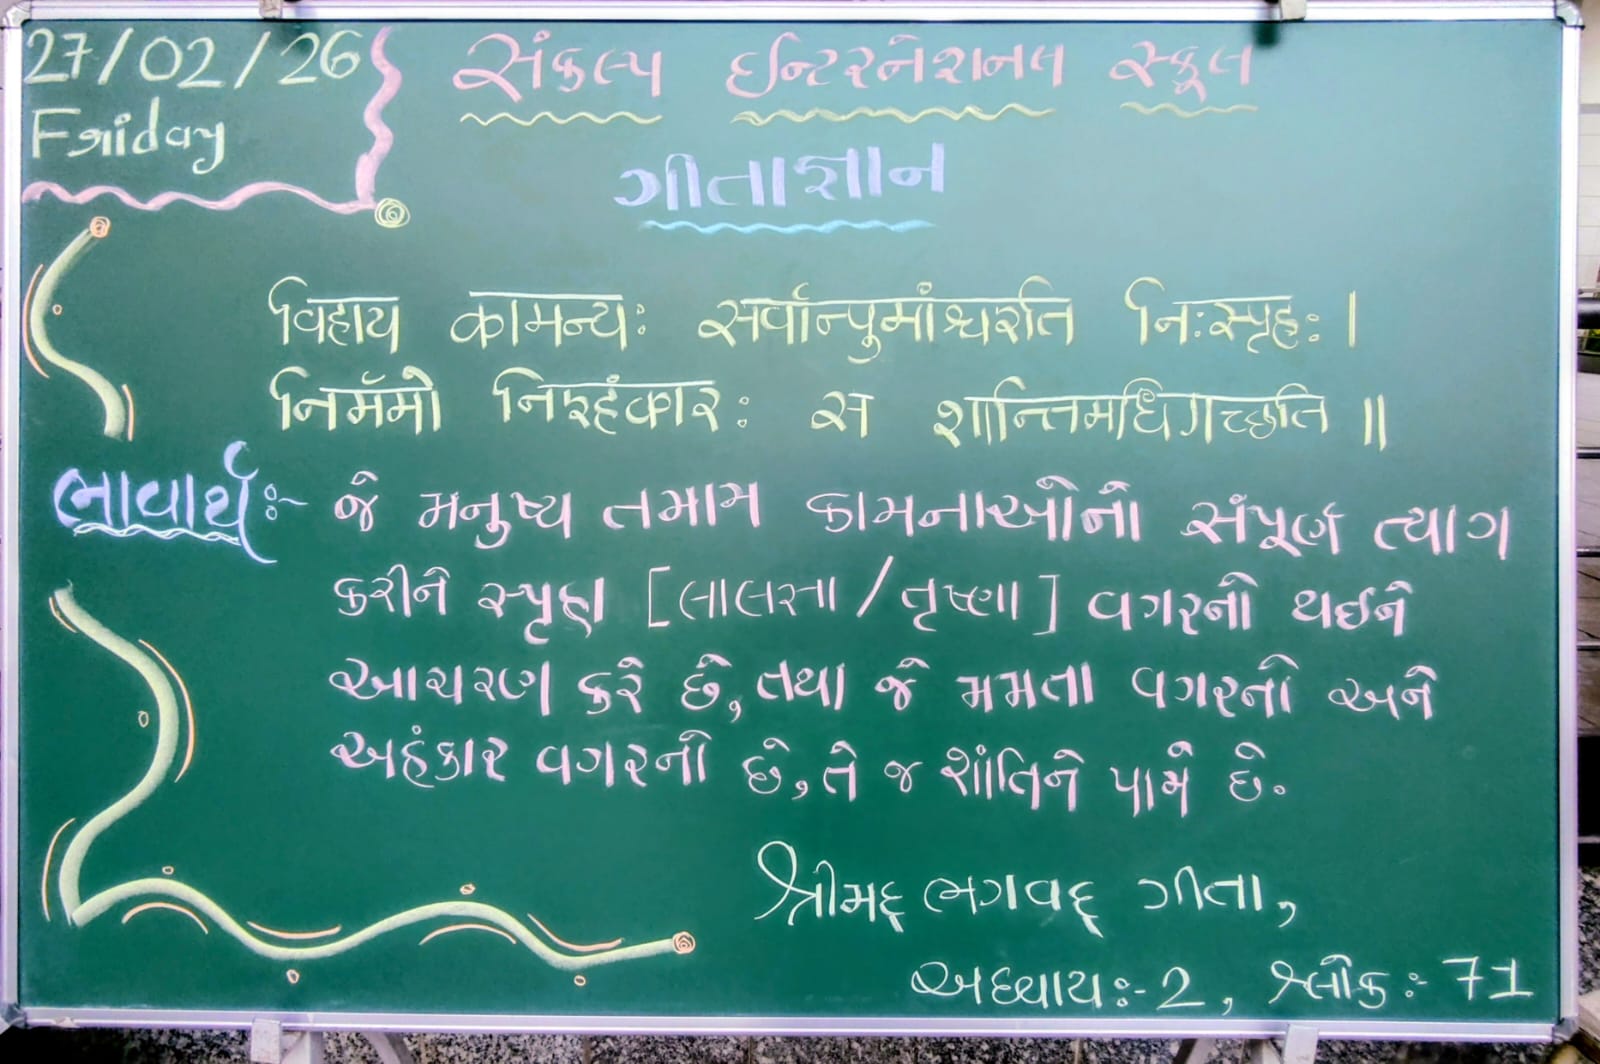 27/02/26
Friday
સંકલ્પ ઈન્ટરનેશનલ સ્કૂલ
ગીતાજ્ઞાન
विहाय कामन्यः सर्वान्पुमांश्चरति निःस्पृहः ।
निर्ममो निरहंकारः स शान्तिमधिगच्छति ॥
ભાવાર્થ:- જે મનુષ્ય તમામ કામનાઓનો સંપૂર્ણ ત્યાગ
કરીને સ્પૃહા [લાલસા / તૃષ્ણા] વગરનો થઈને
આચરણ કરે છે, તથા જે મમતા વગરનો અને
અહંકાર વગરનો છે, તે જ શાંતિને પામે છે.
શ્રીમદ્ ભગવદ્ ગીતા,
અધ્યાય:- 2, શ્લોક:- 71